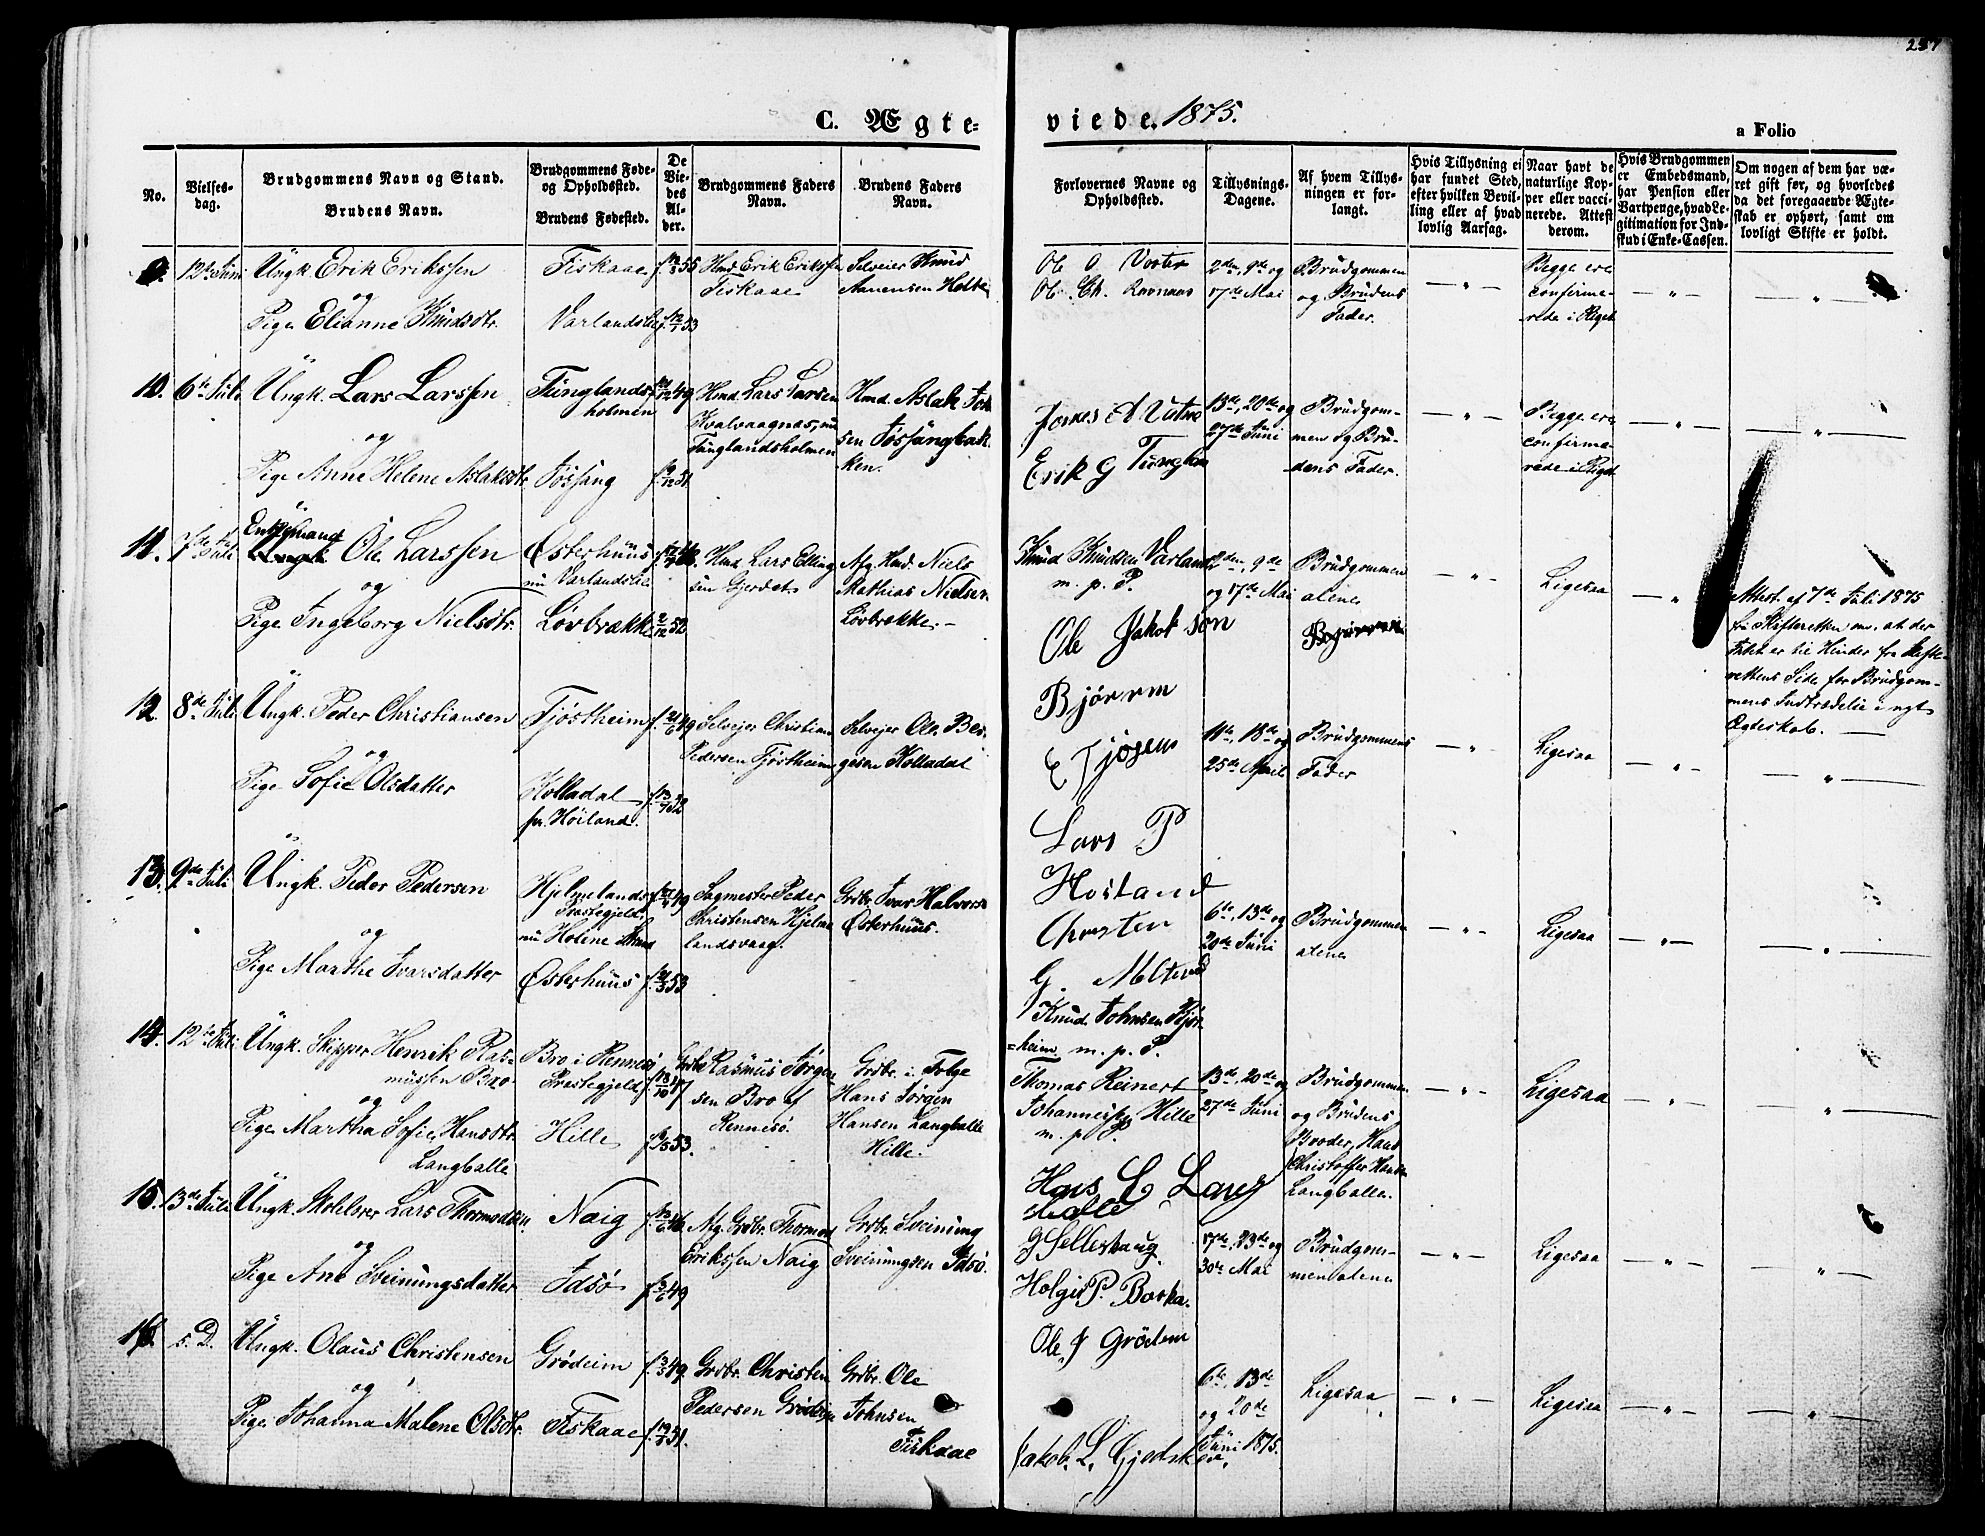 257
C. Ægte-
viede. 1875.
a Folio
No.
Vielses-
dag.
Brudgommens Navn og Stand.
Brudens Navn.
Brudgommens Føde-
og Opholdssted.
Brudens Fødested.
De
Vie-
des
Al-
der.
Brudgommens Faders
Navn.
Brudens Faders
Navn.
Forlovernes Navne og
Opholdssted.
Tillysnings-
Dagene.
Af hvem Tillys-
ningen er for-
langt.
Hvis Tillysning ei
har fundet Sted,
efter hvilken Bevil-
ling eller af hvad
lovlig Aarsag.
Naar havt de
naturlige Kop-
per eller vacci-
nerede. Attest
derom.
Hvis Brudgommen
er Embedsmand,
har Pension eller
Vartpenge, hvad Le-
gitimation for Ind-
skud i Enke-Cassen.
Om nogen af dem har væ-
ret gift før, og hvorledes
da det foregaaende Ægte-
skab er ophørt, samt om
lovligt Skifte er holdt.
9. 12te Juni Ungk. Erik Erikssen
og
Pige Elianne Knudsdtr.
Fiskaae
Varlandslie
Hmd. Erik Erikssen
Fiskaae
Selveier Knud
Ole O Voster
Ole Ch. Ravnaas
2den, 9de og
17de Mai
Brudgommen
og Brudens
Fader.
Begge ere
confirme-
rede i Regel.
10. 6te Juli Ungk. Lars Larssen
og
Pige Anne Helene Aslaksdtr.
Tunglands-
holmen
Jøssang
Hmd. Lars Larsen
Kvalvaagnæs, nu
Tunglandsholmen
Hmd. Aslak Joh
sen Jøssangbak-
ken.
Erik G Tunglan
13de, 20de og
27de Juni
Brudgom-
men og Bru-
dens Fader.
Begge ere
confirme-
rede i Regel
11. 7de Juli
Enkemand
Ungk. Ole Larssen
og
Pige Ingeborg Nielsdtr.
Østerhuus
nu Varlandslie
Løvbrække
Hmd. Lars Elling
sen Gjerdet
Afg. Hmd. Niels
Mathias Nielsen
Løvbrække.
Knud Knudsen Varland
m. p. P.
Ole Jakobson
Bjørren
2den, 9de
og 17de Mai
Brudgommen
alene
Ligesaa
Attest af 7de Juli 1875
fra Skifteretten om, at der
Intet er til Hinder fra Skifte-
rettens Side for Brudgom-
mens Indtrædelse i nyt
Ægteskab.
12. 8de Juli Ungk. Peder Christiansen
og
Pige Sofie Olsdatter
Fjøstheim
Holladal
pr. Høiland.
Selveier Christian
Pedersen Fjøstheim
Selveier Ole Ber-
gesen Holladal
E Tjøgen
Lars P
Hosland
11te, 18de og
25de April
Brudgommens
Fader
Ligesaa
13. 9de Juli Ungk. Peder Pedersen
og
Pige Marthe Ivarsdatter
Hjelmelands
Præstegjeld
Østerhuus
Sagmester Peder
Christensen Hjelme
landsvaag.
Grdbr. Ivar Halvors
Østerhuus.
Chresten
G. Meltved
Knud Johnsen Bjør-
=heim m. p. P.
6te, 13de og
20de Juni
Brudgommen
alene
Ligesaa
14. 12te Juli Ungk. Skipper Henrik Ras-
mussen Bro
og
Pige Martha Sofie Hansdtr.
Langballe
Bro i Rennesø
Præstegjeld
Hille
Grdbr. Rasmus Jørgen
sen Bro af
Rennesø.
Grdbr. i Følge
Hans Jørgen
Hansen Langballe
Hille.
Thomas Reinert
Johannessen Hille
m. p. P.
Hans C Lang
balle
13de, 20de og
27de Juni
Brudgommen
og Brudens
Broder, Hans
Christoffer Hansen
Langballe.
Ligesaa
15. 13de Juli Ungk. Skoblører Lars Thormodsen
og
Pige Ane Sveinungsdatter
Naig
Idsø
Afg. Grdbr. Thormod
Erikssen Naig
Grdbr. Sveinung
Sveinungsen Idsø.
Holger P. Borka.
17de, 23de og
30te Mai
Brudgom-
men alene
Ligesaa
16. s. D. Ungk. Olaus Christensen
og
Pige Johanna Malene Olsdtr.
Grødeim
Fiskaae
Grdbr. Christen
Pedersen Grødeim
Grdbr. Ole
Johnsen
Fiskaae
Ole J Grødem
Jakob. L. Gjedsk
6te, 13de
og 20de
Juni 1875.
Ligesaa
Ligesaa